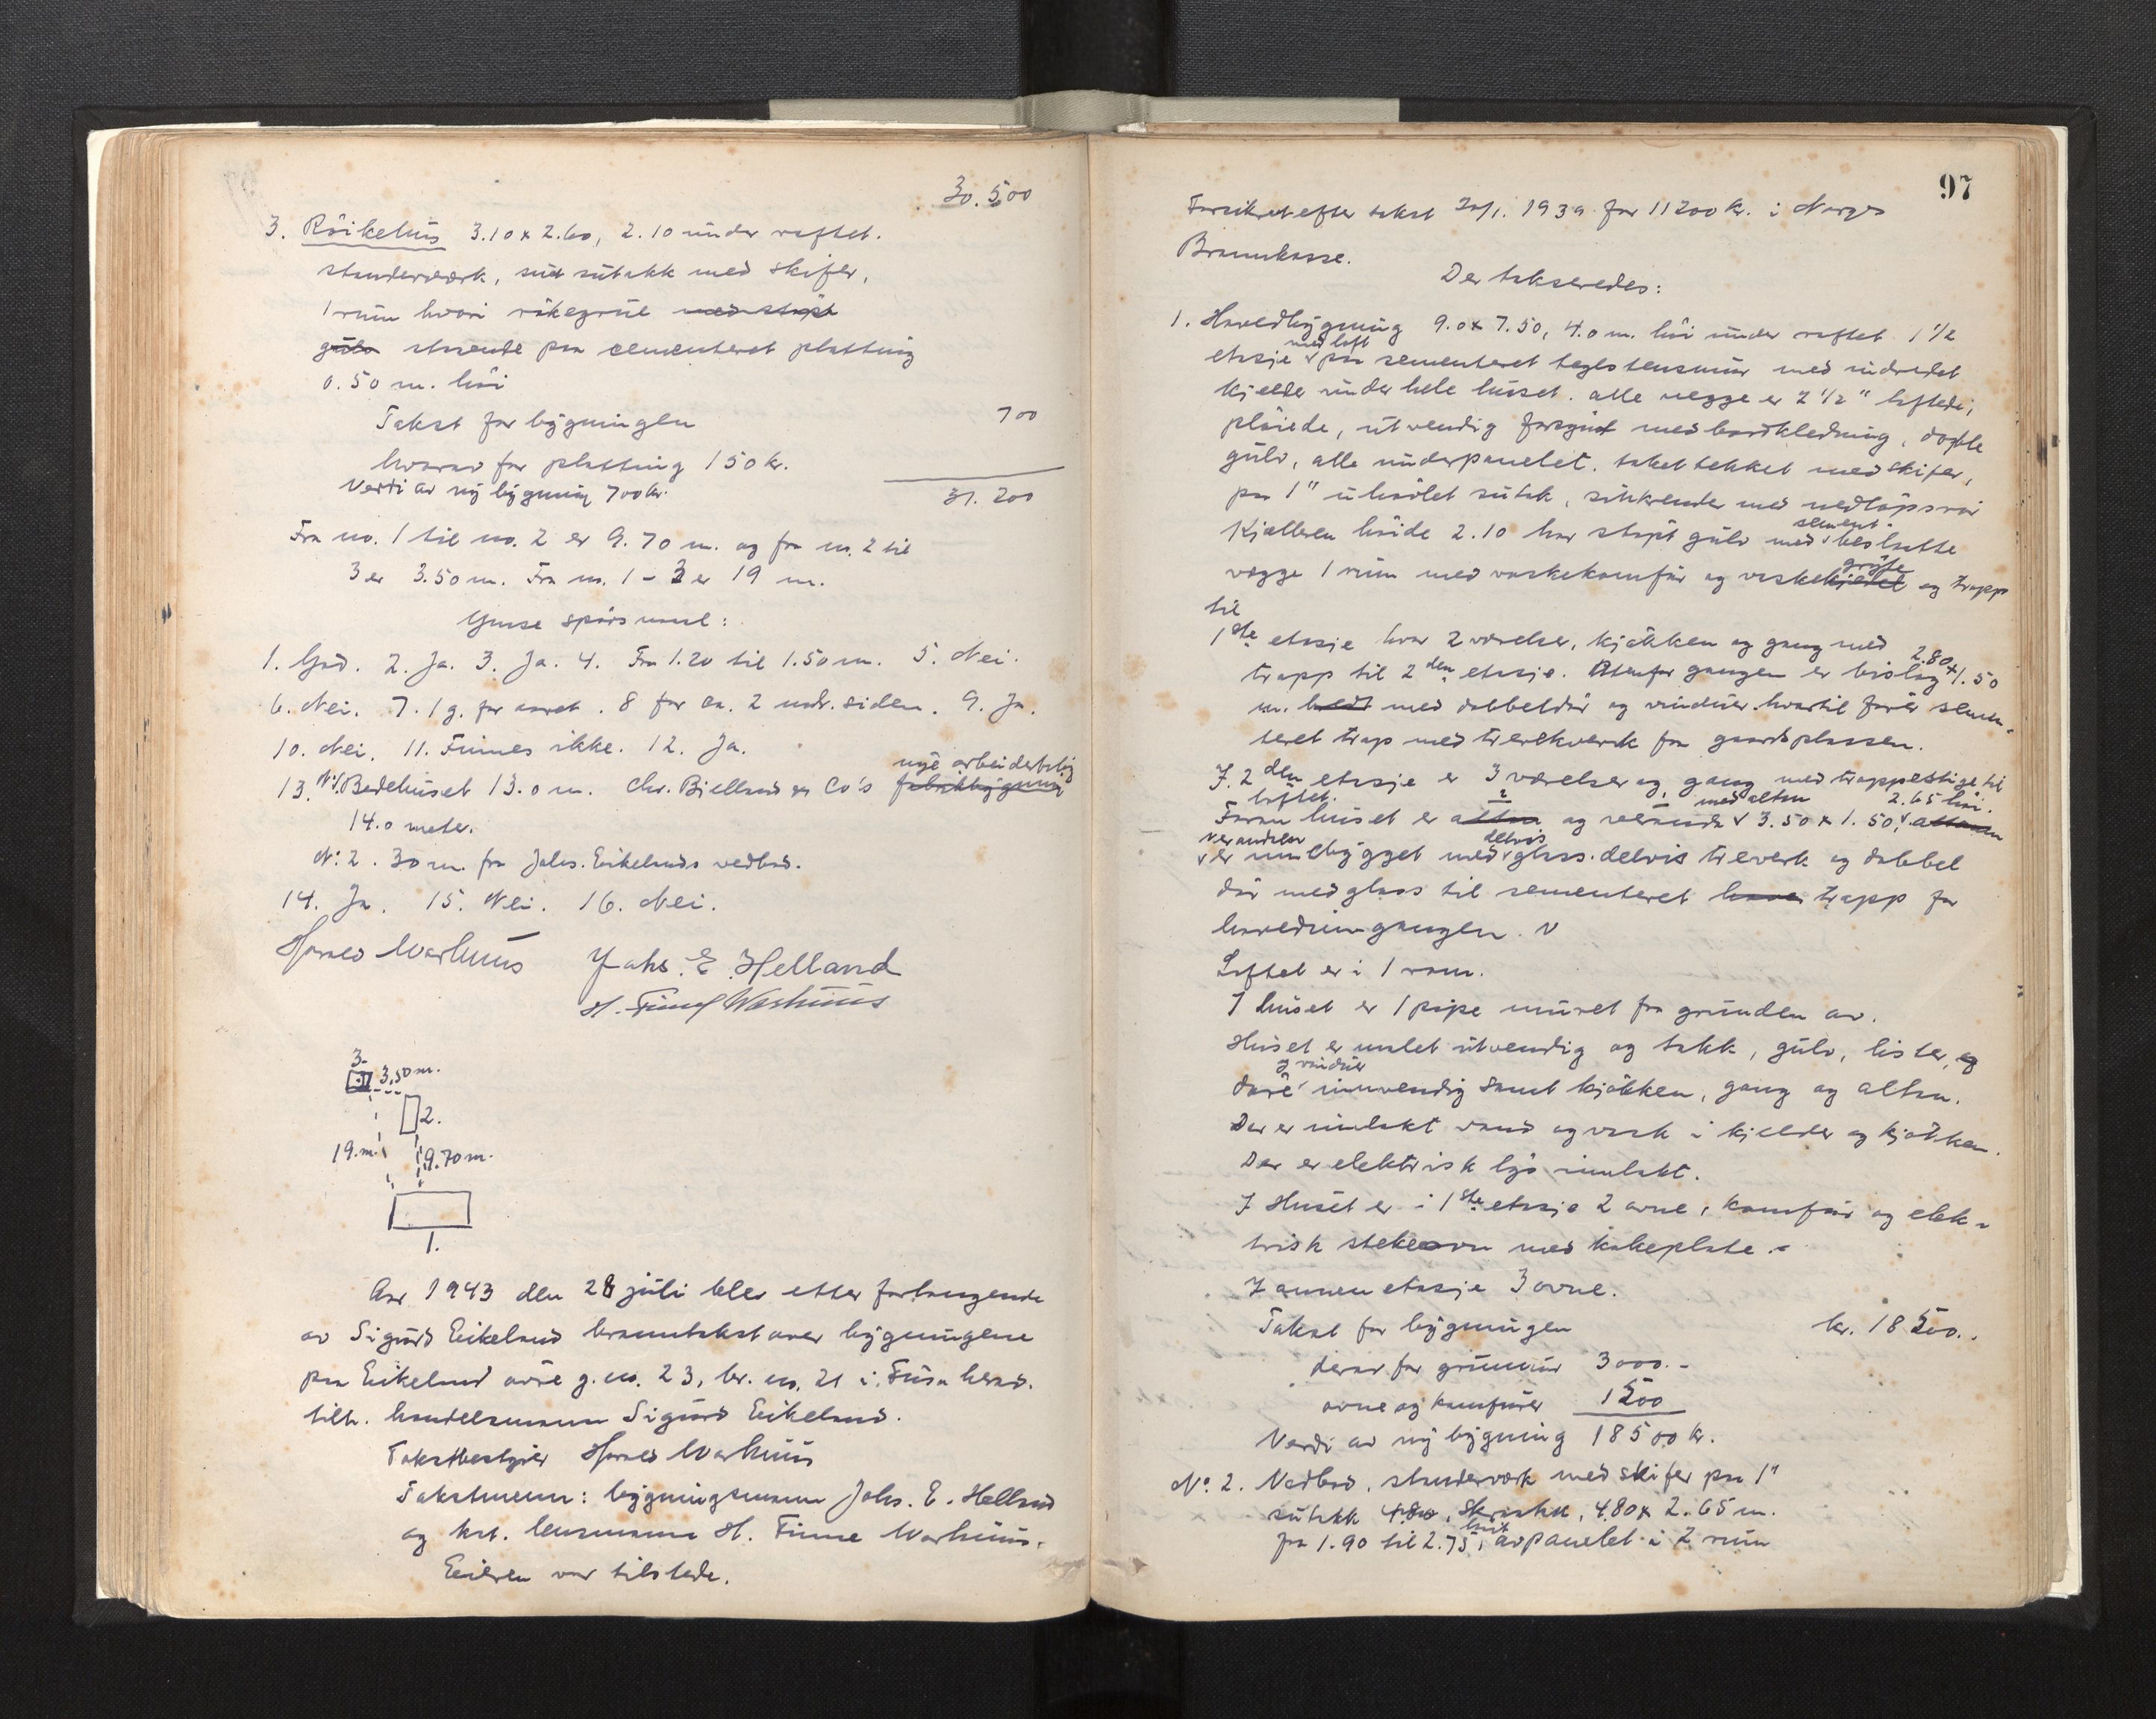 30.500
3. Röikehus 3.10 x 2.60, 2.10 under raftet.
standerverk, sutakk med skifer,
1 rum hvori rökegrue med stöpt
gulv staaende paa cementeret platting
0.50 m. höi
Takst for bygningen 700
hvorav for platting 150 kr.
Verdi av ny bygning 700 kr. 31.200
Fra no. 1 til no. 2 er 9.70 m. og fra no. 2 til
3 er 3.50 m. Fra no. 1 - 3 er 19 m.
Ymse spörsmaal:
1. God. 2. Ja. 3. Ja. 4. Fra 1.20 til 1.50 m. 5. Nei.
6. Nei. 7. 1 g. for aaret. 8 for ca. 2 mdr. siden. 9. Ja.
10. Nei. 11. Finnes ikke. 12. Ja.
nye arbeiderbolig
13. No 1. Bedehuset 13.0 m. Chr. Bielland & Co's fabrikbygning
14.0 meter.
No 2. 30 m. fra Johs. Eikelands vedbod.
14. Ja. 15. Nei. 16. Nei.
Harald Warhuus Johs. E. Helland
H. Finne Warhuus
3.
3,50 m.
2.
19. m. 9.70 m.
1.
Aar 1943 den 28 juli blev etter forlangende
av Sigurd Eikeland branntakst over bygningene
paa Eikeland övre g. no. 23, br. no. 21 i Fusa herad.
tilh. handelsmann Sigurd Eikeland.
Takstbestyrer Harald Warhuus
Takstmenn: bygningsmann Johs. E. Helland
og kst. lensmann H. Finne Warhuus.
Eieren var tilstede.
97
Forsikret efter takst 20/1. 1939 for 11200 kr. i Norges
Brannkasse.
Der takseredes:
1. Hovedbygning 9.0 x 7.50, 4.0 m. höi under raftet 1 1/2
med loft
etasje paa sementeret teglstensmur med indredet
kjelder under hele huset. alle vegge er 2 1/2" loftede,
plöiede, utvendig med bordkledning, dople
gulv, alle underpanelet. taket tekket med skifer,
paa 1" uhövlet sutak, med nedlöpsrör
sement
Kjelleren höide 2.10 har stöpt gulv med beslatte
gryte
vegge 1 rum med vaskekomfür og vaskekjedel og trapp
til
1ste etasje har 2 værelser, kjökken og gang med
2.80 x 1.50
trapp til 2den etasje. Utenfor gangen er bislag
m. bredt med dobbeldör og vinduer hvortil förer semen-
teret trap med trerekverk fra gaardsplassen.
I 2den etasje er 3 værelser og gang med trappestige til
loftet. med altan 2.65 höi.
Foran huset er altan og veranda 3.50 x 1.50, altanen
verandaen delvis
er innebygget med glass. delvis treverk og dobbel
dör med glass til sementeret have trapp for
hovedinngangen.
Loftet er i 1 rom.
I huset er 1 pipe muret fra grunden av.
Huset er malet utvendig og takk, gulv, lister, og
og vinduer
döre innvendig samt kjökken, gang og altan.
Der er innlakt vand og vask i kjelder og kjökken.
Der er elektrisk lys innlakt.
I Huset er i 1ste etasje 2 ovne, komfür og elek-
trisk stekeovn med kokeplate.
I annen etasje 3 ovne.
Takst for bygningen kr. 18500.
derav for grunmur 3000.-
ovne og komfürer 1500
Verdi av ny bygning 18500 kr.
No 2. Vedbod, standerverk med skifer paa 1"
sutakk 4.80, skråtak, 4.80 x 2.65 m.
höit
fra 1.90 til 2.75, avpanelet i 2 rum